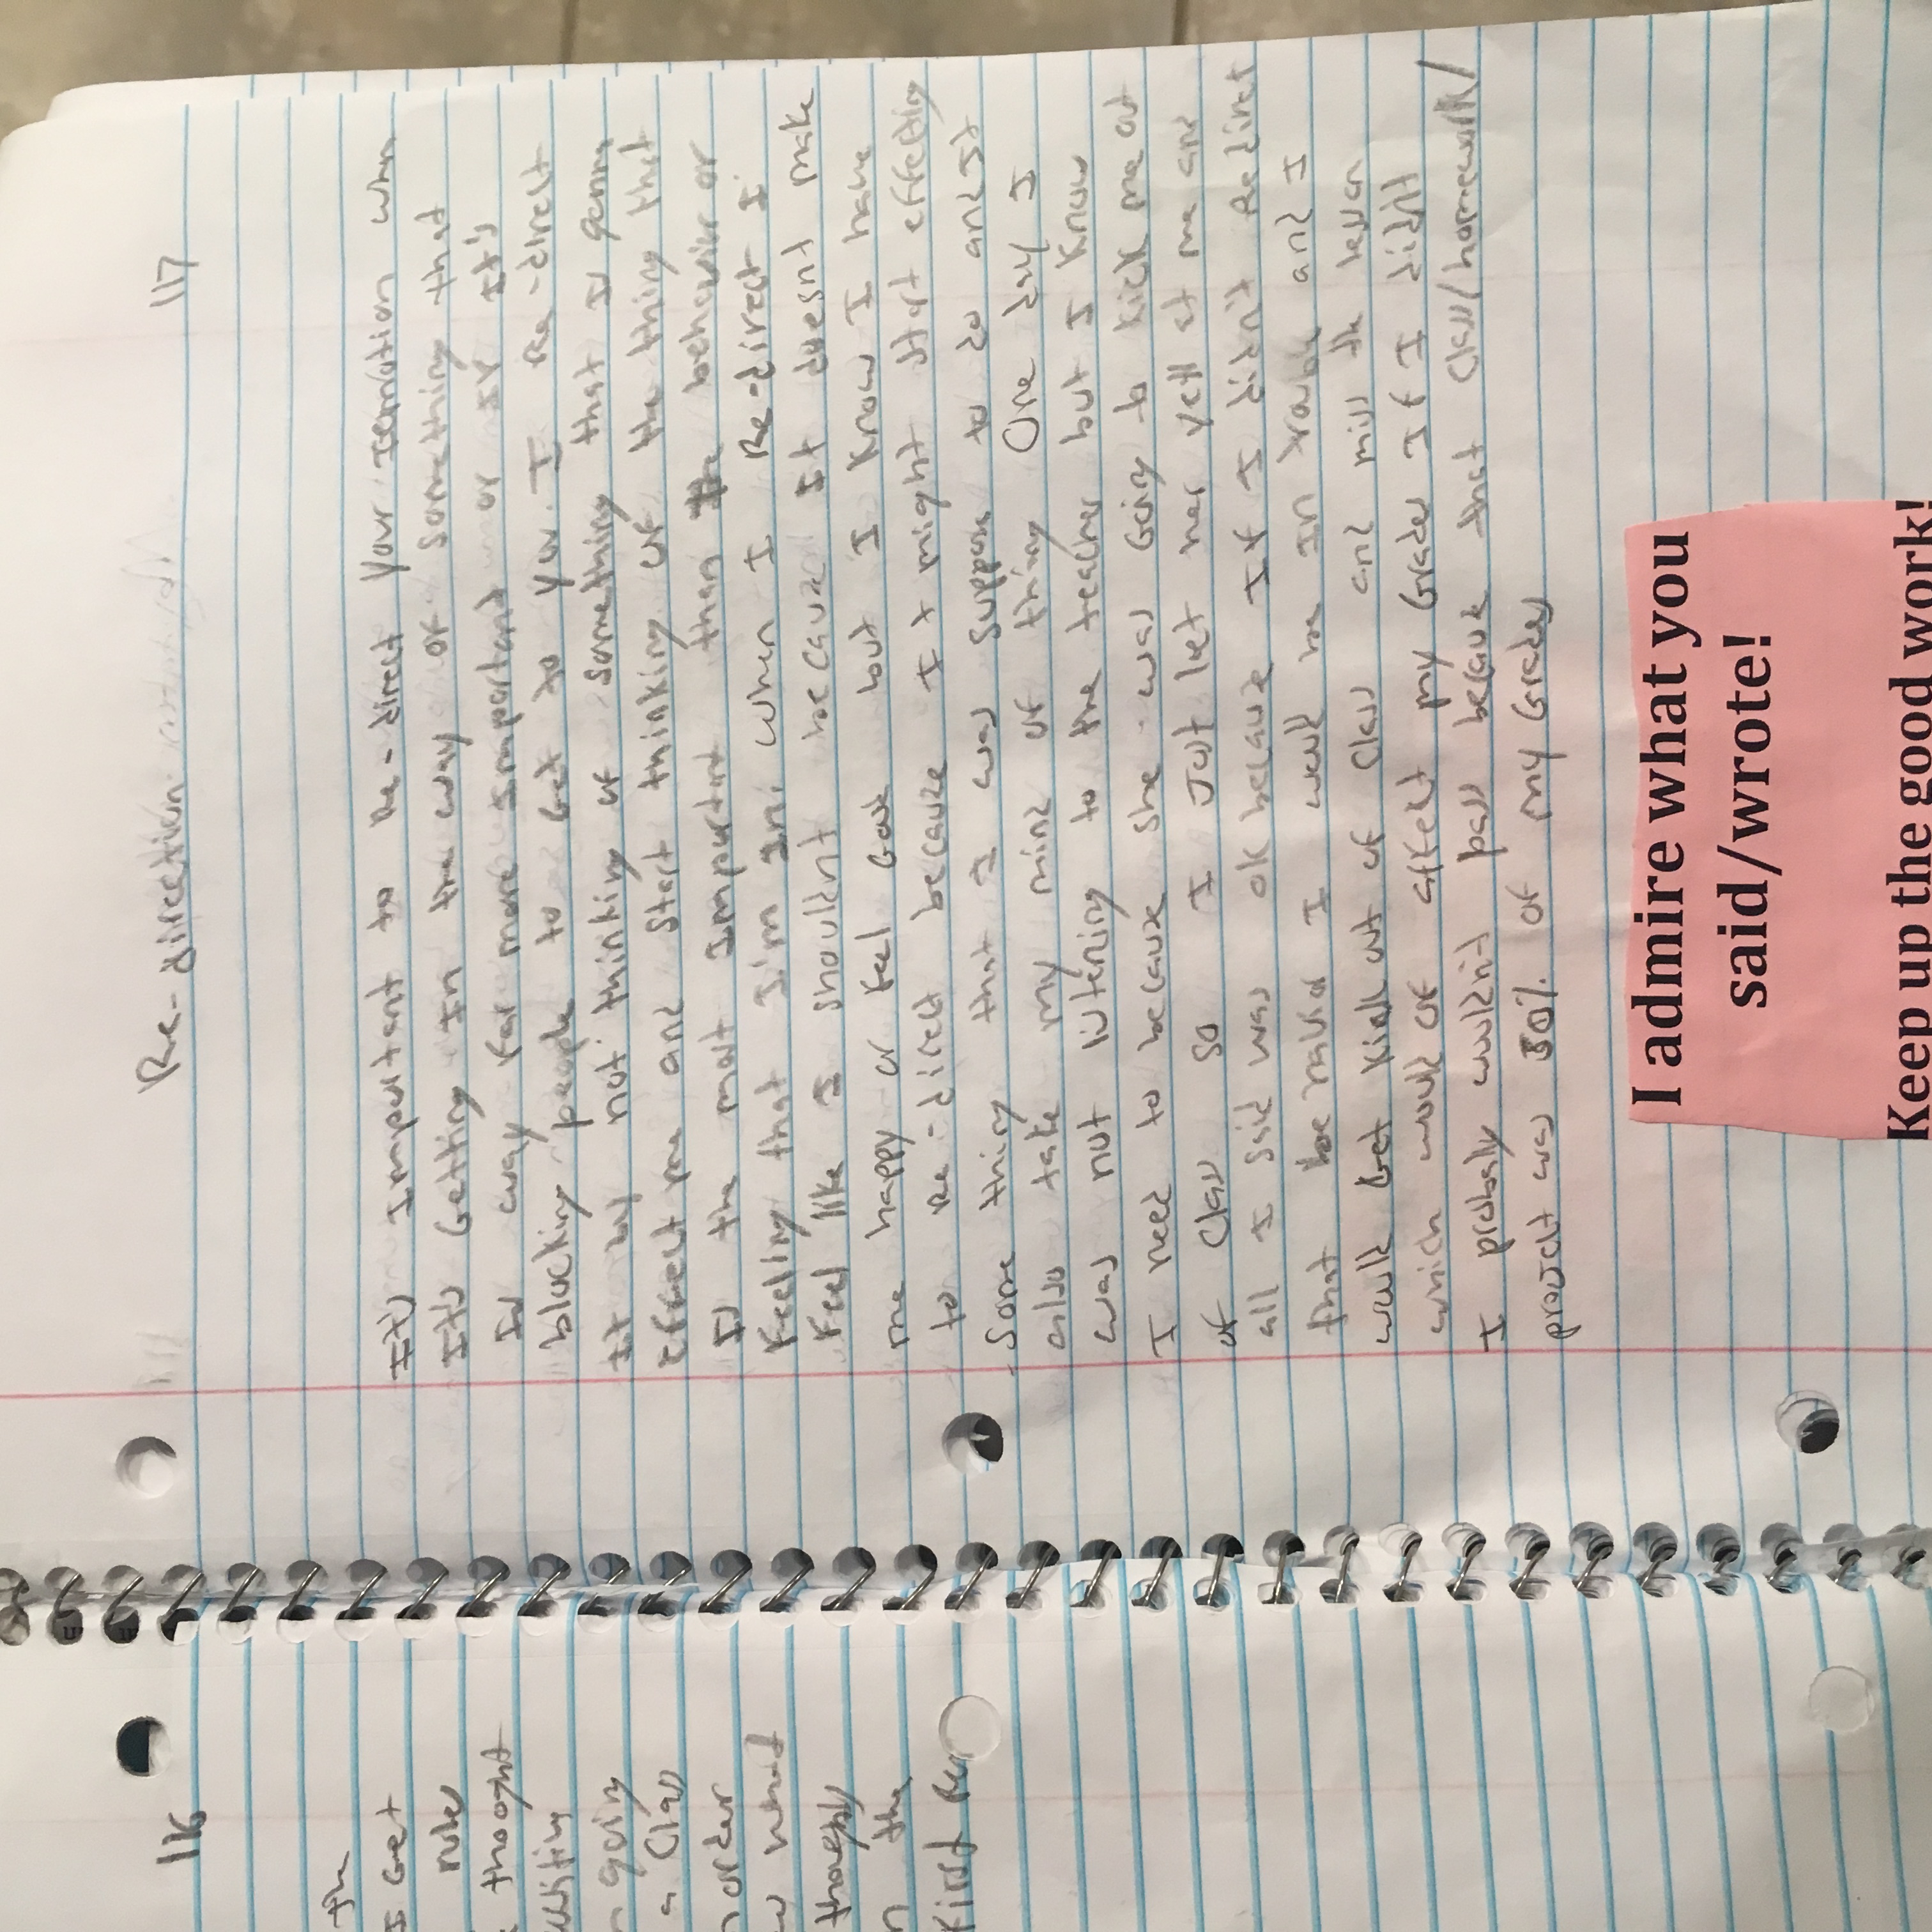 Re-direction
117
It's Important to Re-direct your Iemotion when
It's Getting In the way of something that
Is way far more Important or If It's
blocking people to Get to you. I Re-direct
It by not thinking of something that Is gonna
Effect me and Start thinking of the thing that
Is the most Important than the behavior or
Feeling that I'm In. When I Re-direct I
Feel like I shouldnt because It doesnt make
me happy or feel Good but I Know I have
to re-direct because It might start effecting
Some thing that I was suppose to do and It
also take my mind of thing One day I
was not listening to the teacher but I know
I need to because she was Going to kick me out
of Class so I Just let her yell at me and
all I said was ok because If I didnt Redirect
that behavior I would be In trouble and I
would Get kick out of Class and miss the lesson
which would of affect my Grades If I didnt
I probally wouldnt pass because that Class/homework/
project was 50% of my Grades
I admire what you
said/wrote!
Keep up the good work!
116
the
I Get
rules
thought
going
a Class
order
what
the
First